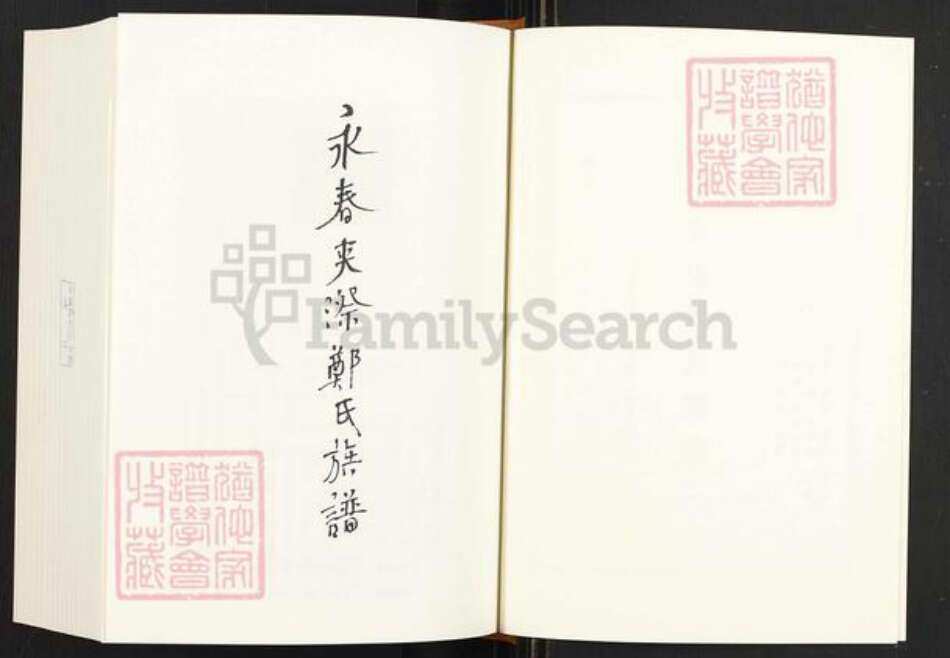 永春夾漈鄭氏族譜
猶他家
譜學會
收藏
猶他家
譜學會
收藏
FamilySearch